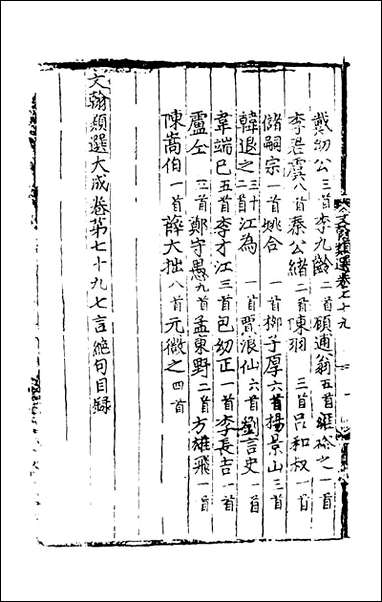 文翰類選卷七十九
戴幼公三首李九齡二首顧逋翁五首雍裕之一首
李君虞八首秦公緒二首陳羽三首吕和叔一首
儲嗣宗一首姚合一首柳子厚六首楊景山三首
韓退之三十二首江為一首賈浪仙六首劉言史一首
韋端巳五首李才江三首包幼正一首李長吉一首
盧仝三首鄭守愚九首孟東野二首方雄飛一首
陳嵩伯一首薛大拙八首元微之四首
文翰類選大成卷第七十九七言絕句目録